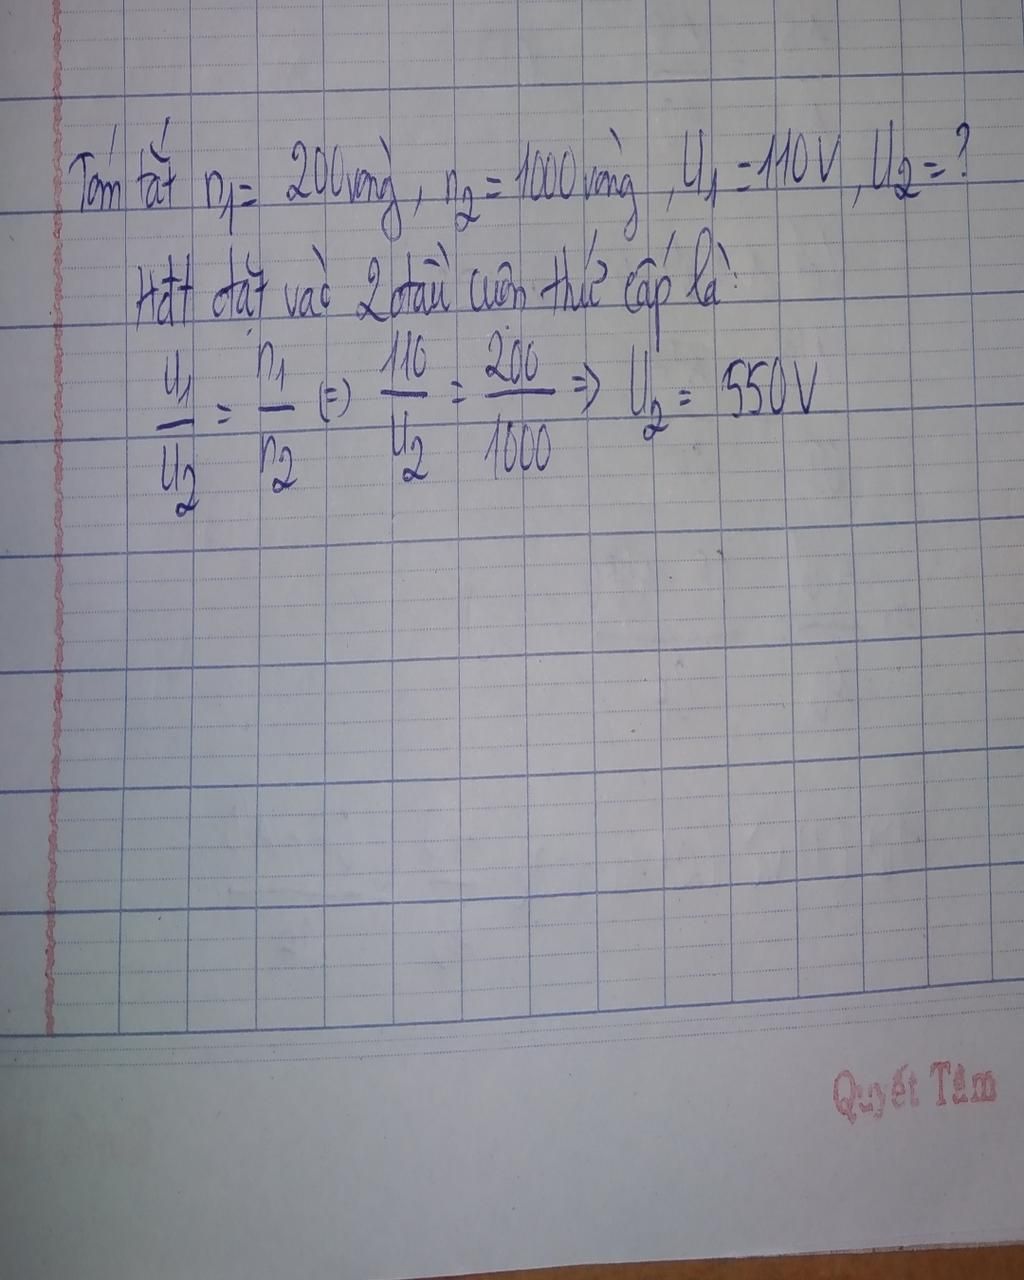 Tóm tắt n1 = 200 vòng, n2 = 1000 vòng, U1 = 110V, U2 = ?
Hđt đặt vào 2 đầu cuộn thứ cấp là:
U1/U2 = n1/n2 (=) 110/U2 = 200/1000 => U2 = 550V
Quyết Tâm